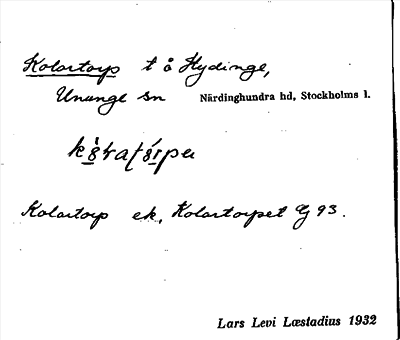 Kolartorp t å Hydinge,
Ununge sn Närdinghundra hd, Stockholms l.
Kolartorp ek. Kolartorpet G 93.
Lars Levi Læstadius 1932